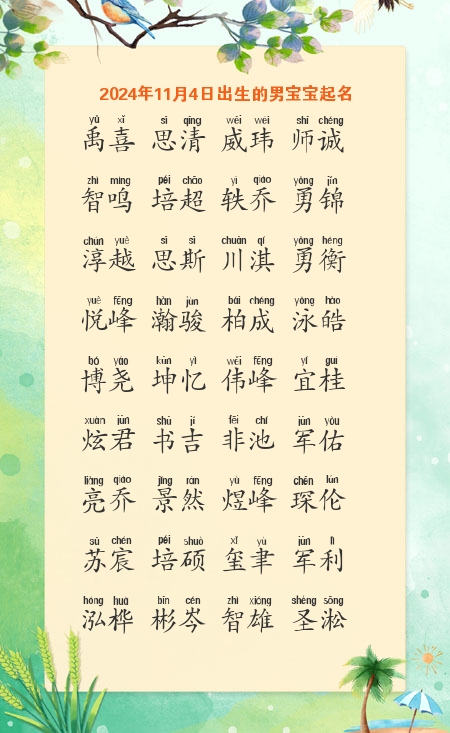 2024年11月4日出生的男宝宝起名
yǔ xǐ sì qīng wēi wěi shī chéng
禹喜 思清 威玮 师诚
zhì míng péi chāo yì qiáo yǒng jǐn
智鸣 培超 轶乔 勇锦
chún yuè sì sì chuān qí yǒng héng
淳越 思斯 川淇 勇衡
yuè fēng hàn jùn bǎi chéng yǒng hào
悦峰 瀚骏 柏成 泳皓
bó yáo kūn yì wěi fēng yí guì
博尧 坤忆 伟峰 宜桂
xuàn jūn shū jí fēi chí jūn yòu
炫君 书吉 非池 军佑
liàng qiáo jǐng rán yù fēng chēn lún
亮乔 景然 煜峰 琛伦
sū chén péi shuò xǐ yù jūn lì
苏宸 培硕 玺聿 军利
hóng huà bīn cén zhì xióng shèng sōng
泓桦 彬岑 智雄 圣淞